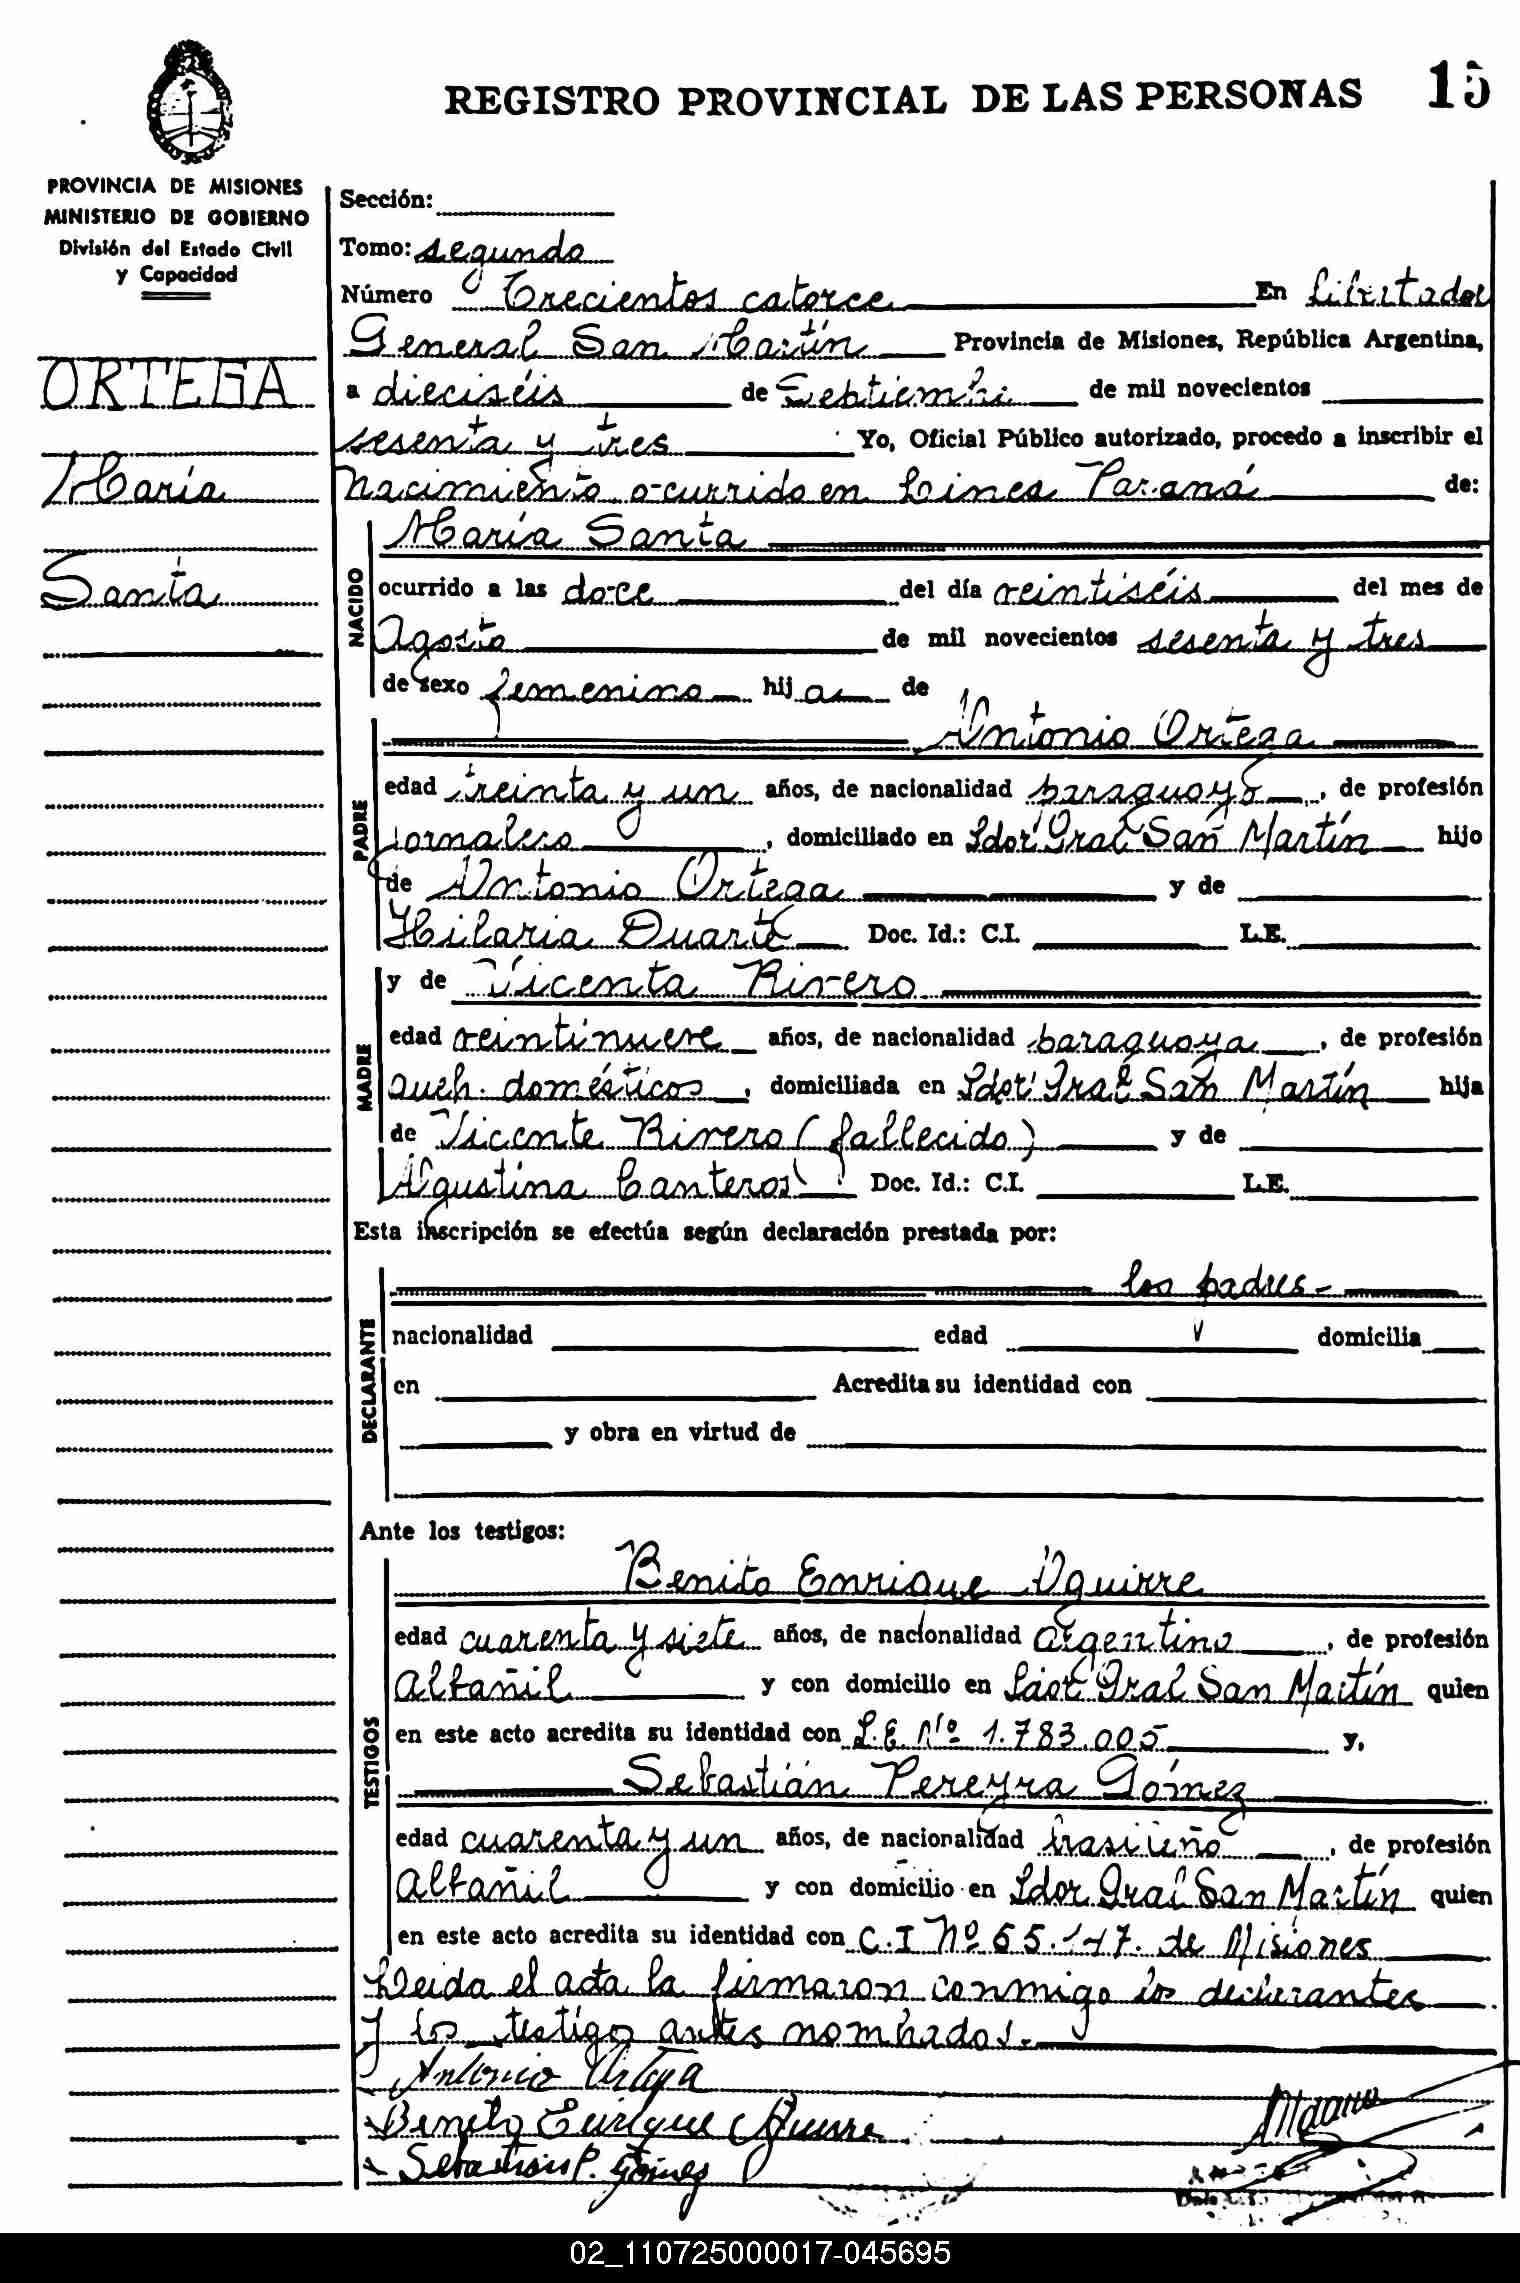 REGISTRO PROVINCIAL DE LAS PERSONAS 15
PROVINCIA DE MISIONES
MINISTERIO DE GOBIERNO
División del Estado Civil
y Capacidad
ORTEGA
María
Santa
Sección:
Tomo: segundo
Número Trecientos catorce En Libertador
General San Martín Provincia de Misiones, República Argentina,
a dieciséis de Septiembre de mil novecientos
sesenta y tres Yo, Oficial Público autorizado, procedo a inscribir el
Nacimiento ocurrido en Linea Paraná de:
NACIDO
María Santa
ocurrido a las doce del día veintiséis del mes de
Agosto de mil novecientos sesenta y tres
de sexo femenino hija de
PADRE
Antonio Ortega
edad treinta y un años, de nacionalidad paraguayo, de profesión
jornalero, domiciliado en Ldor Gral San Martín hijo
de Antonio Ortega y de
Hilaria Duarte Doc. Id.: C.I. L.E.
MADRE
y de Vicenta Rivero
edad veintinueve años, de nacionalidad paraguaya, de profesión
queh. domésticos, domiciliada en Ldor Gral San Martín hija
de Vicente Rivero (fallecido) y de
Agustina Canteros Doc. Id.: C.I. L.E.
Esta inscripción se efectúa según declaración prestada por:
DECLARANTE
los padres-
nacionalidad edad domicilia
en Acredita su identidad con
y obra en virtud de
Ante los testigos:
TESTIGOS
Benito Enrique Aguirre
edad cuarenta y siete años, de nacionalidad argentino, de profesión
Albañil y con domicilio en Ldor Gral San Martín quien
en este acto acredita su identidad con L.E. Nº 1.783.005 y,
Sebastián Pereyra Gómez
edad cuarenta y un años, de nacionalidad brasileño, de profesión
Albañil y con domicilio en Ldor Gral San Martín quien
en este acto acredita su identidad con C.I Nº de Misiones
Leida el acta la firmaron conmigo los declarantes
y los testigos antes nombrados.-
Antonio Ortega
Benito Enrique Aguirre
Sebastian P. Gómez
02_110725000017-045695